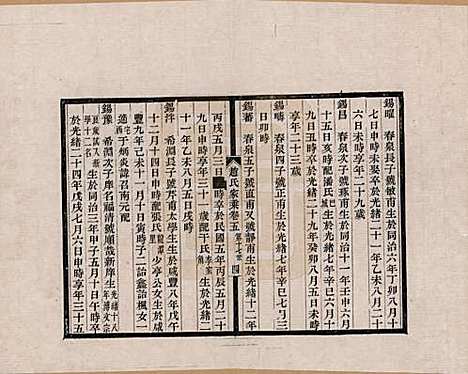 錫曜 春泉長子號敏甫生於同治六年丁卯八月十
七日未時未娶卒於光緒二十一年乙未八月二十
六日未時享年二十九歲
錫昌 春泉次子號琢甫生於同治十一年壬申六月
十五日亥時配潘氏生於光緒七年辛巳六月十
九日丑時卒於光緒二十九年癸卯八月五日未時
享年二十三歲
錫疇 春泉四子號五甫生於光緒七年辛巳七月三
日卯時
錫蕃 春泉五子號直甫又號靜甫生於光緒十二年
趙氏家乘卷五 四
丙戌五月三日時卒於民國五年丙辰五月二十
九日申時享年三十一歲配干氏生於光緒
十一年乙酉八月五日戌時
錫泮 希淵長子號芹甫太學生生於咸豐八年戊午
十二月十四日申時配張氏少亭公女生於咸
豐九年己未十一月十日寅時子一詒鑫詒槐女一
適子炳炎諱召南元配
錫豫 希淵次子庠名福清號順哉新庠生
生於同治三年甲子五月十日子時卒
於光緒二十四年戊戌六月六日申時享年三十五